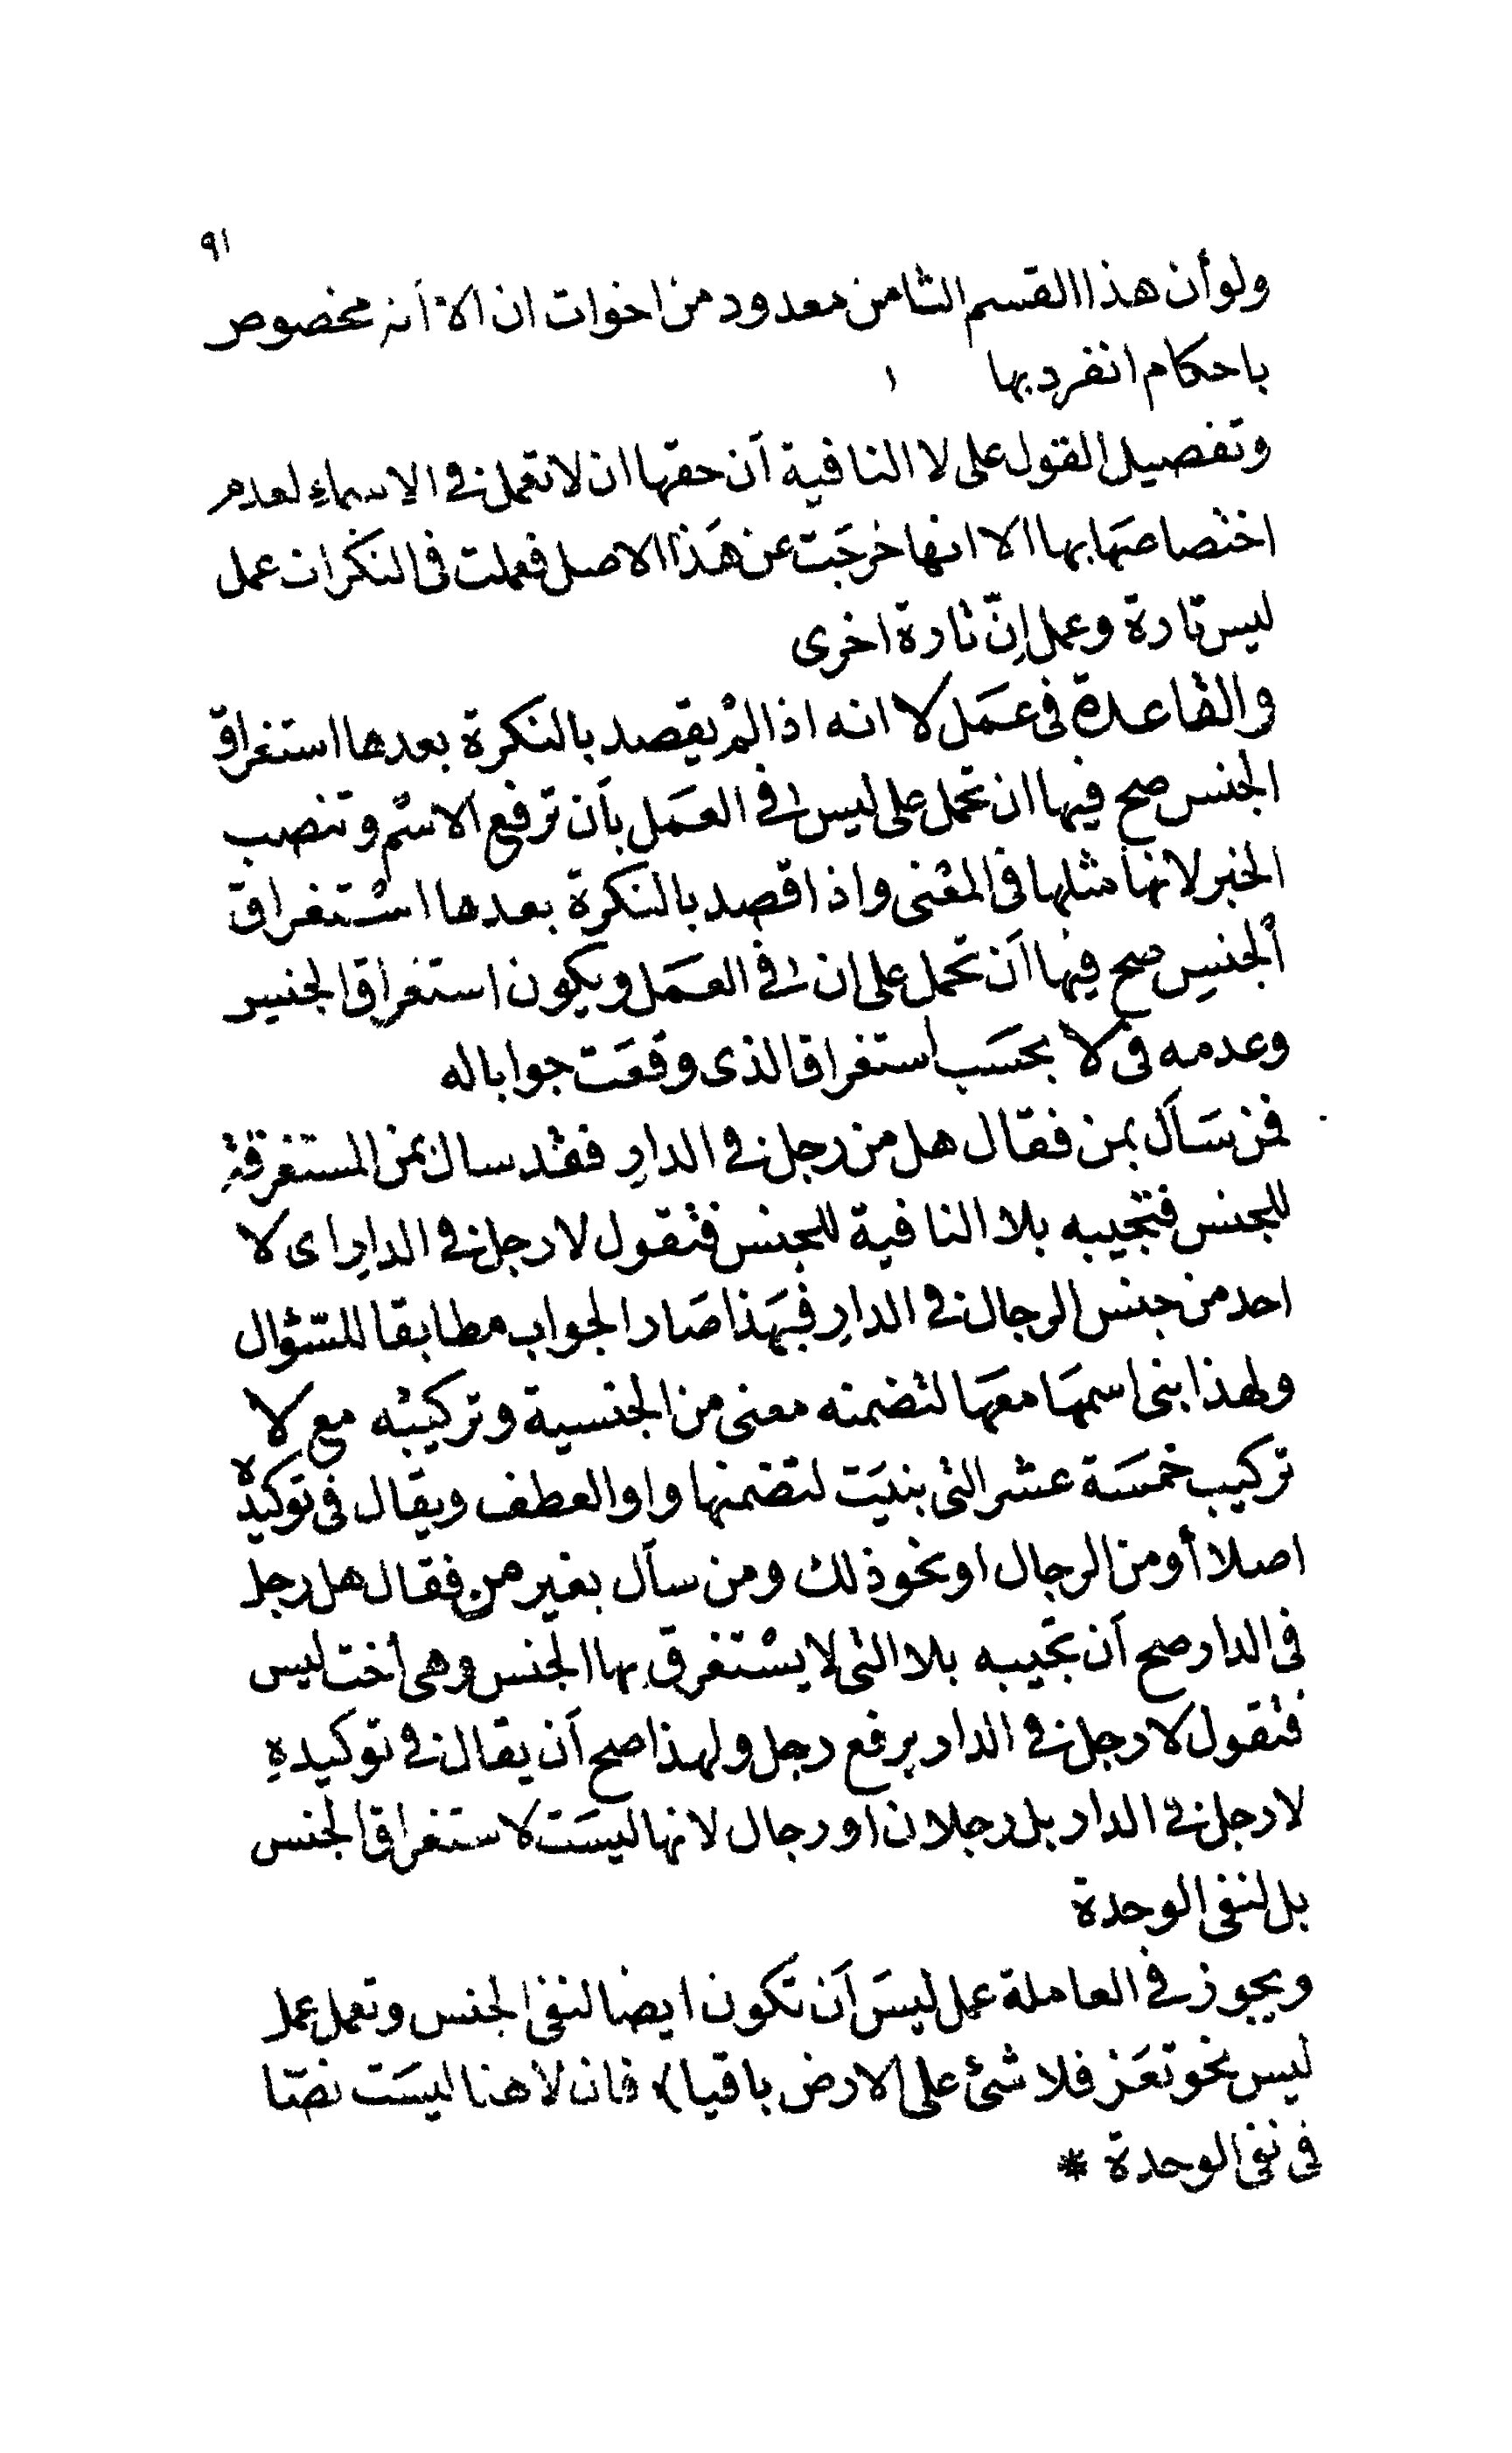 ٩١
ولو أن هذا القسم الثامن معدود من اخوات ان الا أنه مخصوص
باحكام انفرد بها
وتفصيل القول على لا النافية أن حقها ان لا تعمل في الاسماء لعدم
اختصاصها بها الا انها خرجَت عن هَذا الاصل فعملت في النكرات عمل
ليس تارة وعمل إنّ تارة اخرى
والقاعدة في عمَل لا انه اذا لمْ يقصد بالنكرة بعدها استغراق
الجنس صح فيها ان تحمل على ليس في العمَل بأن ترفع الاسْم وتنصب
الخبر لانها مثلها في المعْنى واذا قصد بالنكرة بعدها اسْتغراق
ألجنسِ صح فيها أن تحمل على ان في العمَل ويكون استغراق الجنس
وعدمه في لا بحسَب استغراق الذى وقعَت جوابا له
فمن سَأل بمن فقال هل من رجل في الدارِ فقد سال بمن المستغرقة
للجنس فتجيبه بلا النافية للجنس فتقول لا رجل في الدارِ اى لا
احد من جنس الرجال في الدارِ فبهَذا صَار الجواب مطابقا للسّؤال
ولهذا بنى اسمهَا معهَا لتضمنه معنى من الجنسية وتركيبه مع لا
تركيب خمسَة عشر التى بنيَت لتضمنها واو العطف ويقال في توكيده
اصلا أو من الرجال او نحو ذلك ومن سأل بغير من فقال هل رجل
في الدار صح أن تجيبه بلا التى لا يسْتغرق بها الجنس وهى أخت ليس
فتقول لا رجل في الدار برفع رجل ولهذا صح أن يقال في توكيدهِ
لا رجل في الدار بل رجلان او رجال لانها ليسَت لاستغراق الجنس
بل لنفى الوحدة
ويجوز في العاملة عمل ليسَ أن تكون ايضا لنفى الجنس وتعمل عمل
ليس نحو تعَز فلا شئ على الارض باقيا) فان لا هنا ليسَت نصّا
في نفى الوحدة *